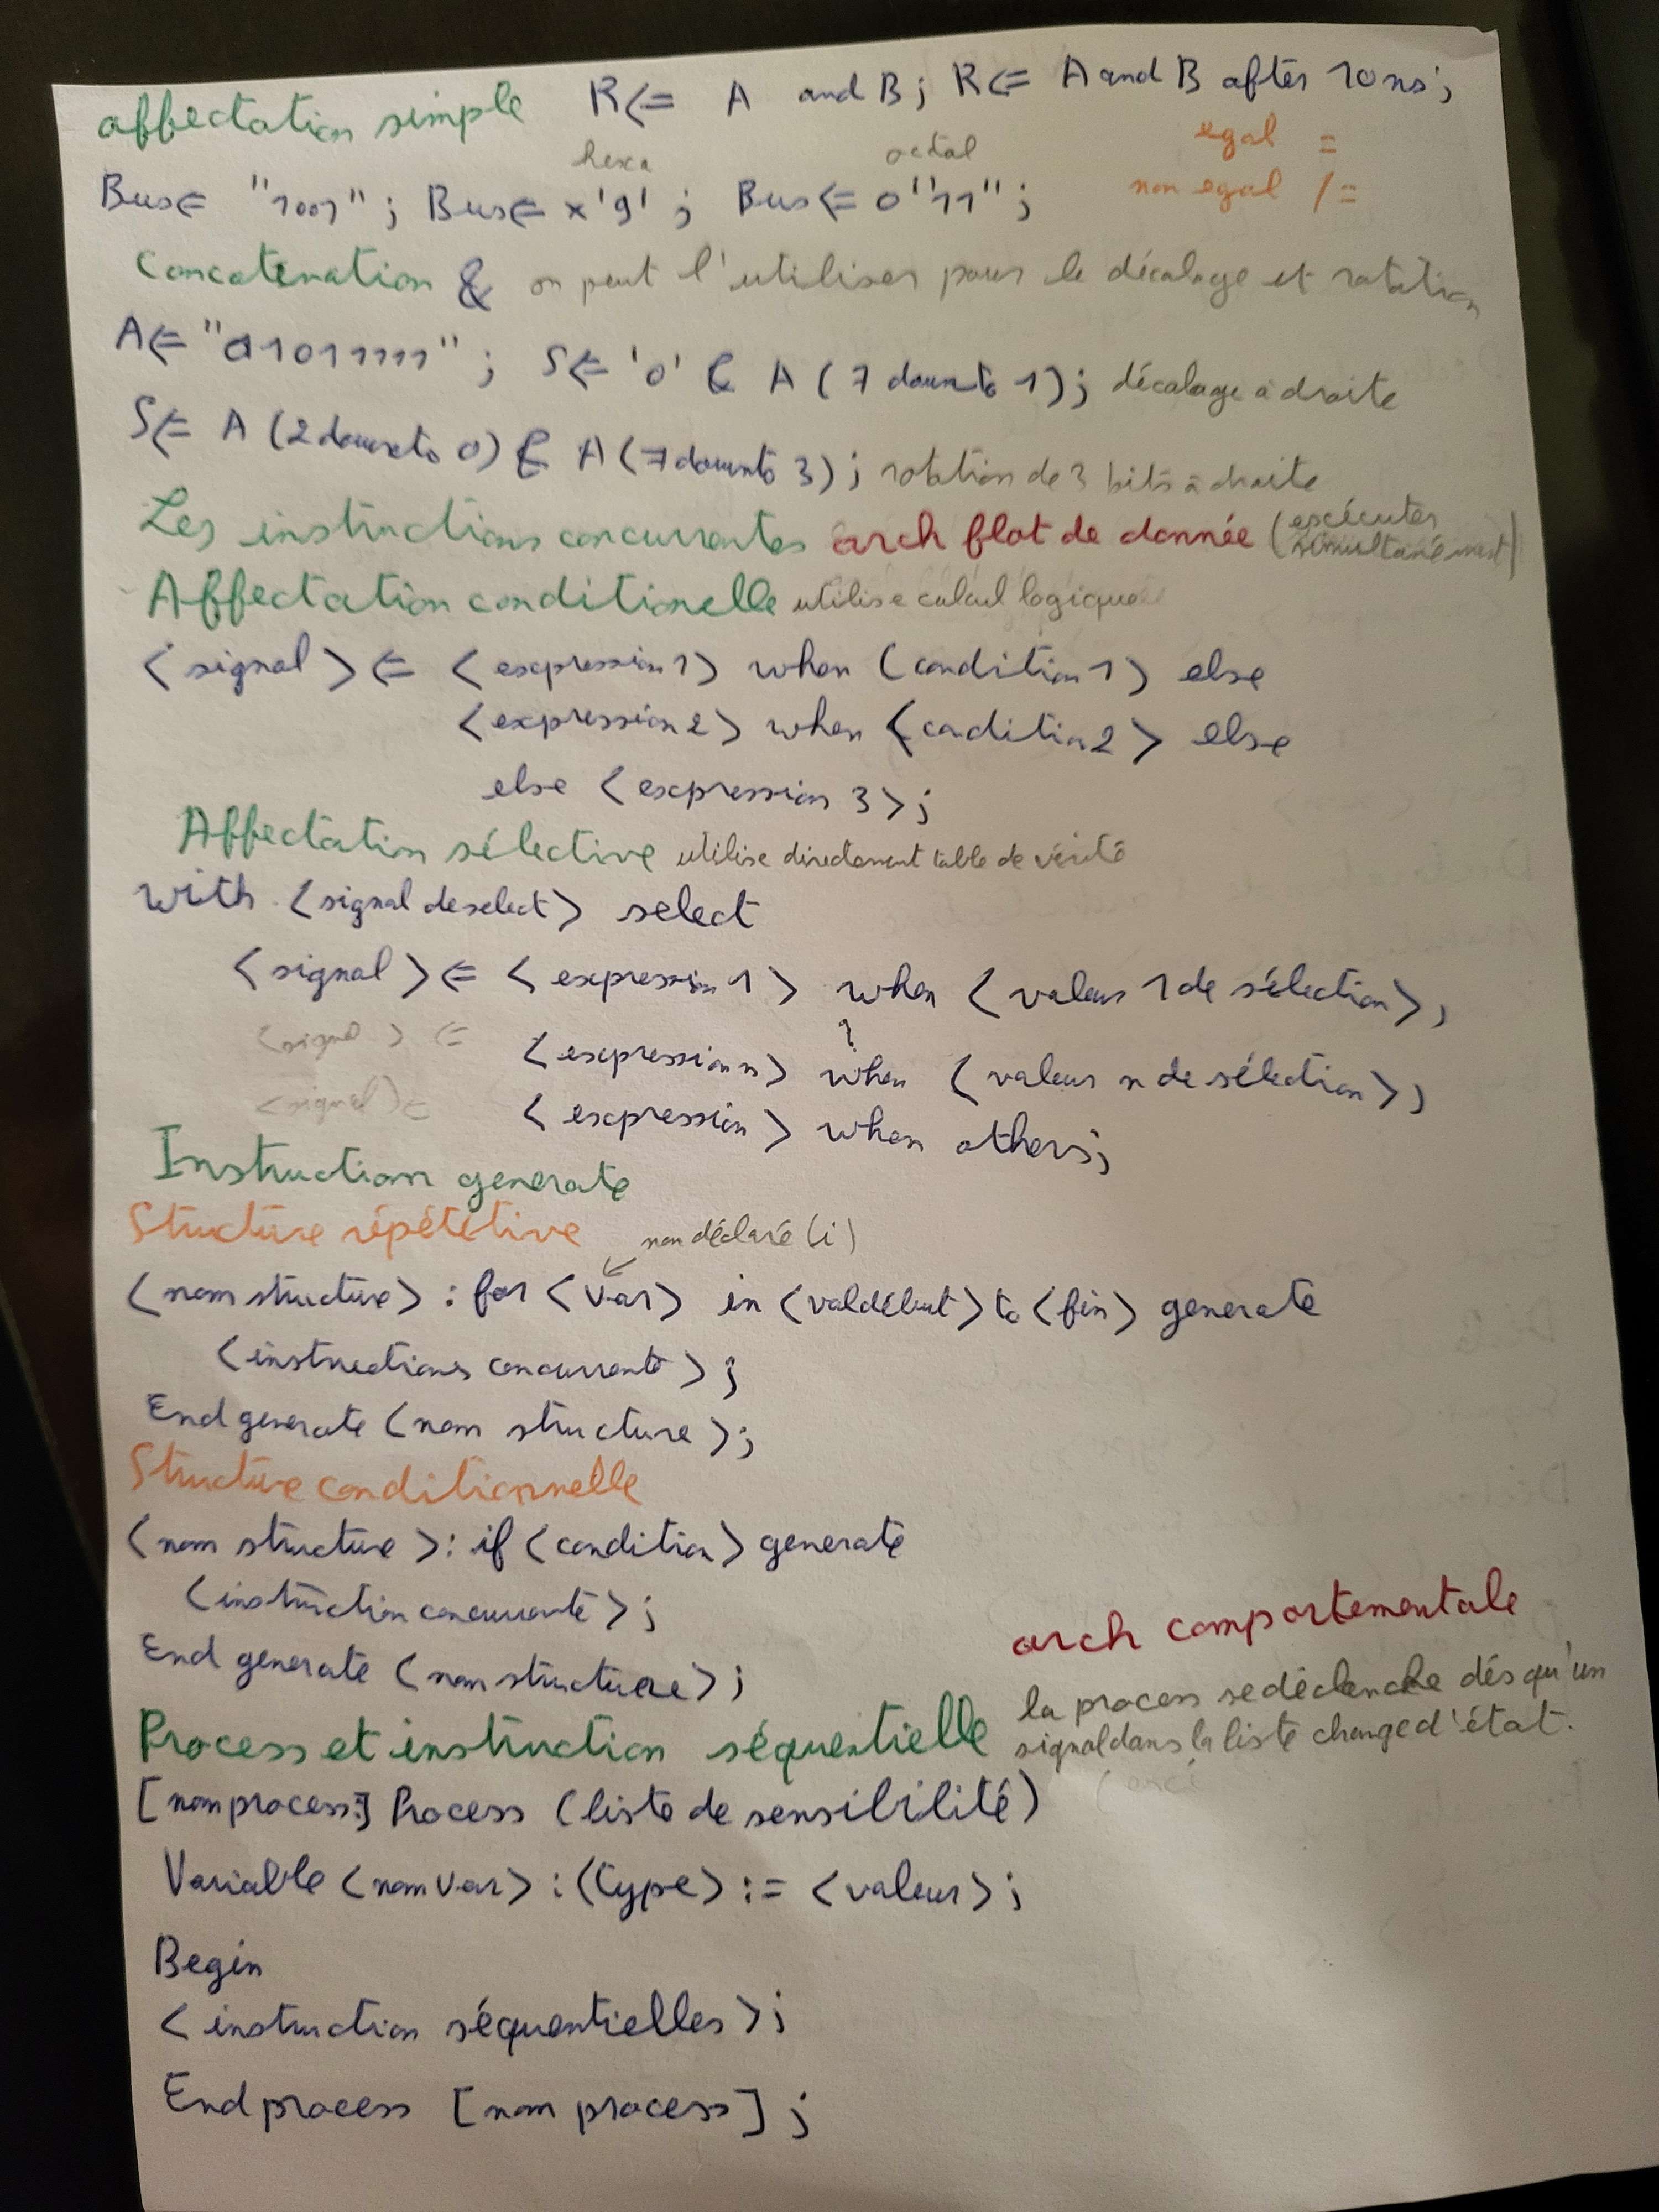 affectation simple R<= A and B; R<= A and B after 10ns;
hexa octal egal =
Bus<= "1001"; Bus<= x'9'; Bus<= o"11"; non egal /=
Concatenation & on peut l'utiliser pour le décalage et rotation
A<= "01011111"; S<= '0' & A (7 downto 1); décalage à droite
S<= A (2 downto 0) & A (7 downto 3); rotation de 3 bits à droite
Les instructions concurrentes arch flot de donnée (exécuter simultanément)
Affectation conditionelle utilise calcul logique
<signal> <= <expression1> when (condition1> else
<expression2> when <condition2> else
else <expression 3>;
Affectation sélective utilise directement table de vérité
with <signal de select> select
<signal> <= <expression 1> when <valeur 1 de sélection>,
<signal> <= <expression n> when <valeur n de sélection>,
<signal> <= <expression> when others;
Instruction generate
Structure répététive non déclaré (i)
<nom structure> : for <var> in <val début> to <fin> generate
<instructions concurrente>;
End generate <nom structure>;
Structure conditionnelle
<nom structure>: if <condition> generate
<instruction concurrente>;
End generate <nom structure>;
arch comportementale
Process et instruction séquentielle la process se déclenche dés qu'un
signal dans la liste change d'état.
[nom process:] Process (liste de sensibilité)
Variable <nom var> : (type> := <valeur>;
Begin
<instruction séquentielles>;
End process [nom process];